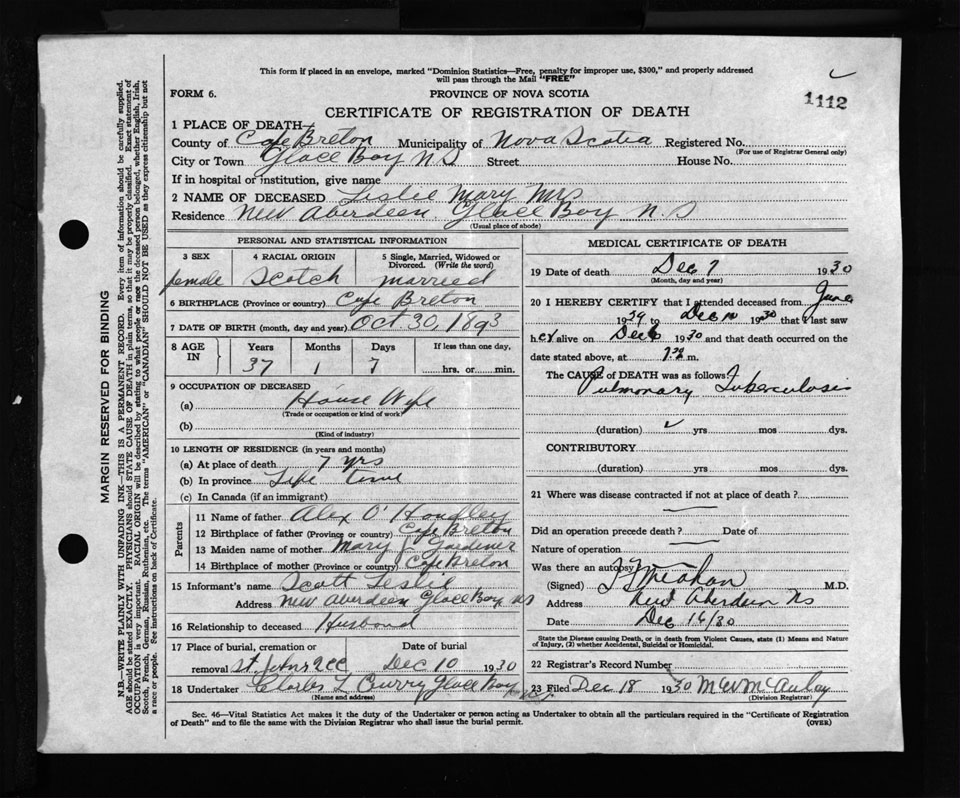 This form if placed in an envelope, marked "Dominion Statistics—Free, penalty for improper use, $300," and properly addressed
will pass through the Mail "FREE"
FORM 6.
PROVINCE OF NOVA SCOTIA
1112
CERTIFICATE OF REGISTRATION OF DEATH
1 PLACE OF DEATH—
County of Cape Breton Municipality of Nova Scotia Registered No.
(For use of Registrar General only)
City or Town Glace Bay N S Street House No.
If in hospital or institution, give name
2 NAME OF DECEASED Leslie Mary Mrs
Residence New Aberdeen Glace Bay N. S
(Usual place of abode)
PERSONAL AND STATISTICAL INFORMATION
3 SEX
female
4 RACIAL ORIGIN
Scotch
5 Single, Married, Widowed or
Divorced. (Write the word)
married
6 BIRTHPLACE (Province or country) Cape Breton
7 DATE OF BIRTH (month, day and year) Oct 30, 1893
8 AGE IN
Years Months Days If less than one day,
37 1 7 hrs. or min.
9 OCCUPATION OF DECEASED
(a) House Wife
(Trade or occupation or kind of work)
(b)
(Kind of industry)
10 LENGTH OF RESIDENCE (in years and months)
(a) At place of death 7 yrs
(b) In province Life time
(c) In Canada (if an immigrant)
Parents
11 Name of father Alex O'Handley
12 Birthplace of father (Province or country) Cape Breton
13 Maiden name of mother Mary Gardener
14 Birthplace of mother (Province or country) Cape Breton
15 Informant's name Scott Leslie
Address New Aberdeen Glace Bay NS
16 Relationship to deceased Husband
17 Place of burial, cremation or
removal St. Johns
Date of burial
Dec 10 1930
18 Undertaker Charles L Curry Glace Bay
(Name and address)
MEDICAL CERTIFICATE OF DEATH
19 Date of death Dec 7 1930
(Month, day and year)
20 I HEREBY CERTIFY that I attended deceased from June
1929 to Dec 1930 that I last saw
her alive on Dec 6 1930 and that death occurred on the
date stated above, at 7 m.
The CAUSE of DEATH was as follows:
Pulmonary Tuberculosis
(duration) yrs mos dys.
CONTRIBUTORY
(duration) yrs mos dys.
21 Where was disease contracted if not at place of death?
Did an operation precede death? Date of
Nature of operation
Was there an autopsy?
(Signed) Meahan M.D.
Address New Aberdeen Ns
Date Dec 16/30
State the Disease causing Death, or in death from Violent Causes, state (1) Means and Nature
of Injury, (2) whether Accidental, Suicidal or Homicidal.
22 Registrar's Record Number
23 Filed Dec 18 1930 McAulay
(Division Registrar)
Sec. 46—Vital Statistics Act makes it the duty of the Undertaker or person acting as Undertaker to obtain all the particulars required in the "Certificate of Registration
of Death" and to file the same with the Division Registrar who shall issue the burial permit.
(OVER)
MARGIN RESERVED FOR BINDING
N.B.—WRITE PLAINLY WITH UNFADING INK—THIS IS A PERMANENT RECORD. Every item of information should be carefully supplied.
AGE should be stated EXACTLY. PHYSICIANS should STATE CAUSE OF DEATH in plain terms, so that it may be properly classified. Exact statement of
OCCUPATION is very important. RACIAL ORIGIN will be described by stating to what people or race the deceased person belonged, whether English, Irish,
Scotch, French, German, Russian, Ruthenian, etc. The terms "AMERICAN" or "CANADIAN" SHOULD NOT BE USED as they express citizenship but not
a race or people. See instructions on back of Certificate.